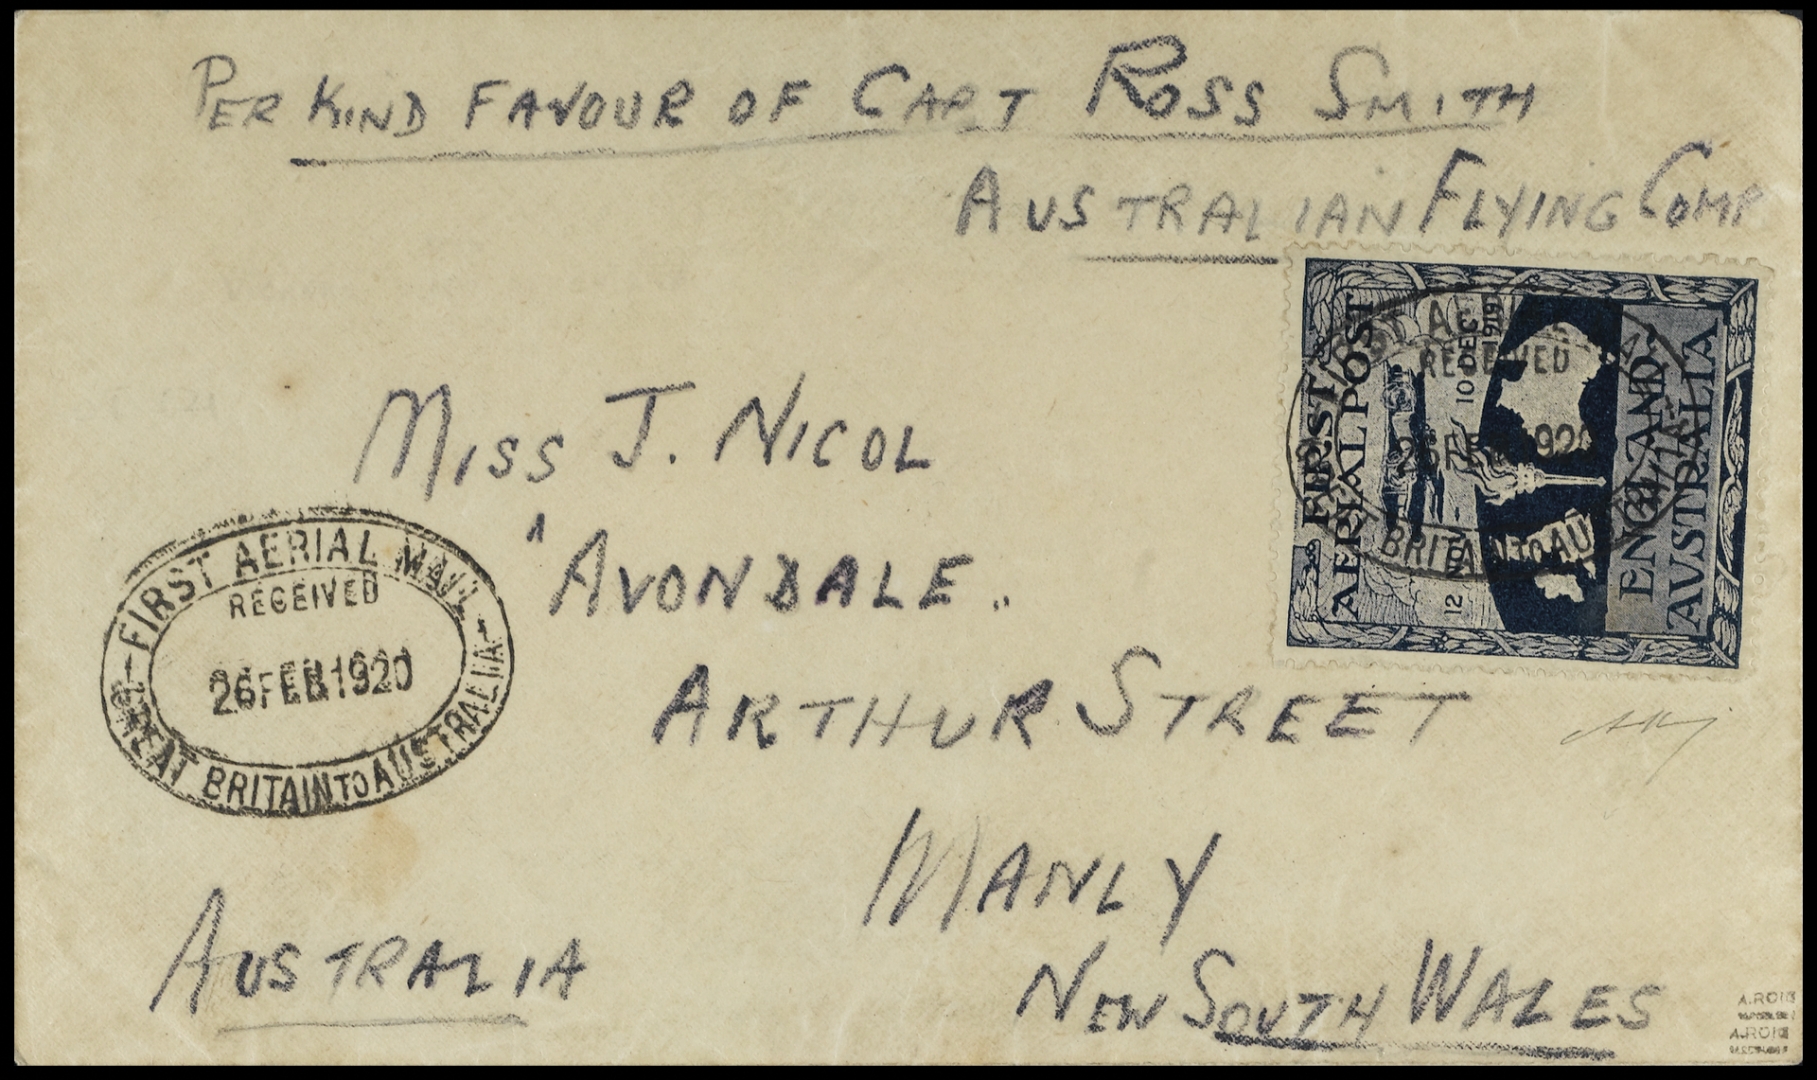 PER KIND FAVOUR OF CAPT ROSS SMITH
AUSTRALIAN FLYING COMP
FIRST
AERIAL POST
12 NOV
10 DEC
1919
ENGLAND
AVSTRALIA
RECEIVED
26 FEB 1920
BRITAIN TO AU
MISS J. NICOL
"AVONDALE"
ARTHUR STREET
MANLY
NEW SOUTH WALES
AUSTRALIA
FIRST AERIAL MAIL
RECEIVED
26 FEB 1920
GREAT BRITAIN TO AUSTRALIA
A.ROIG
A.ROIG